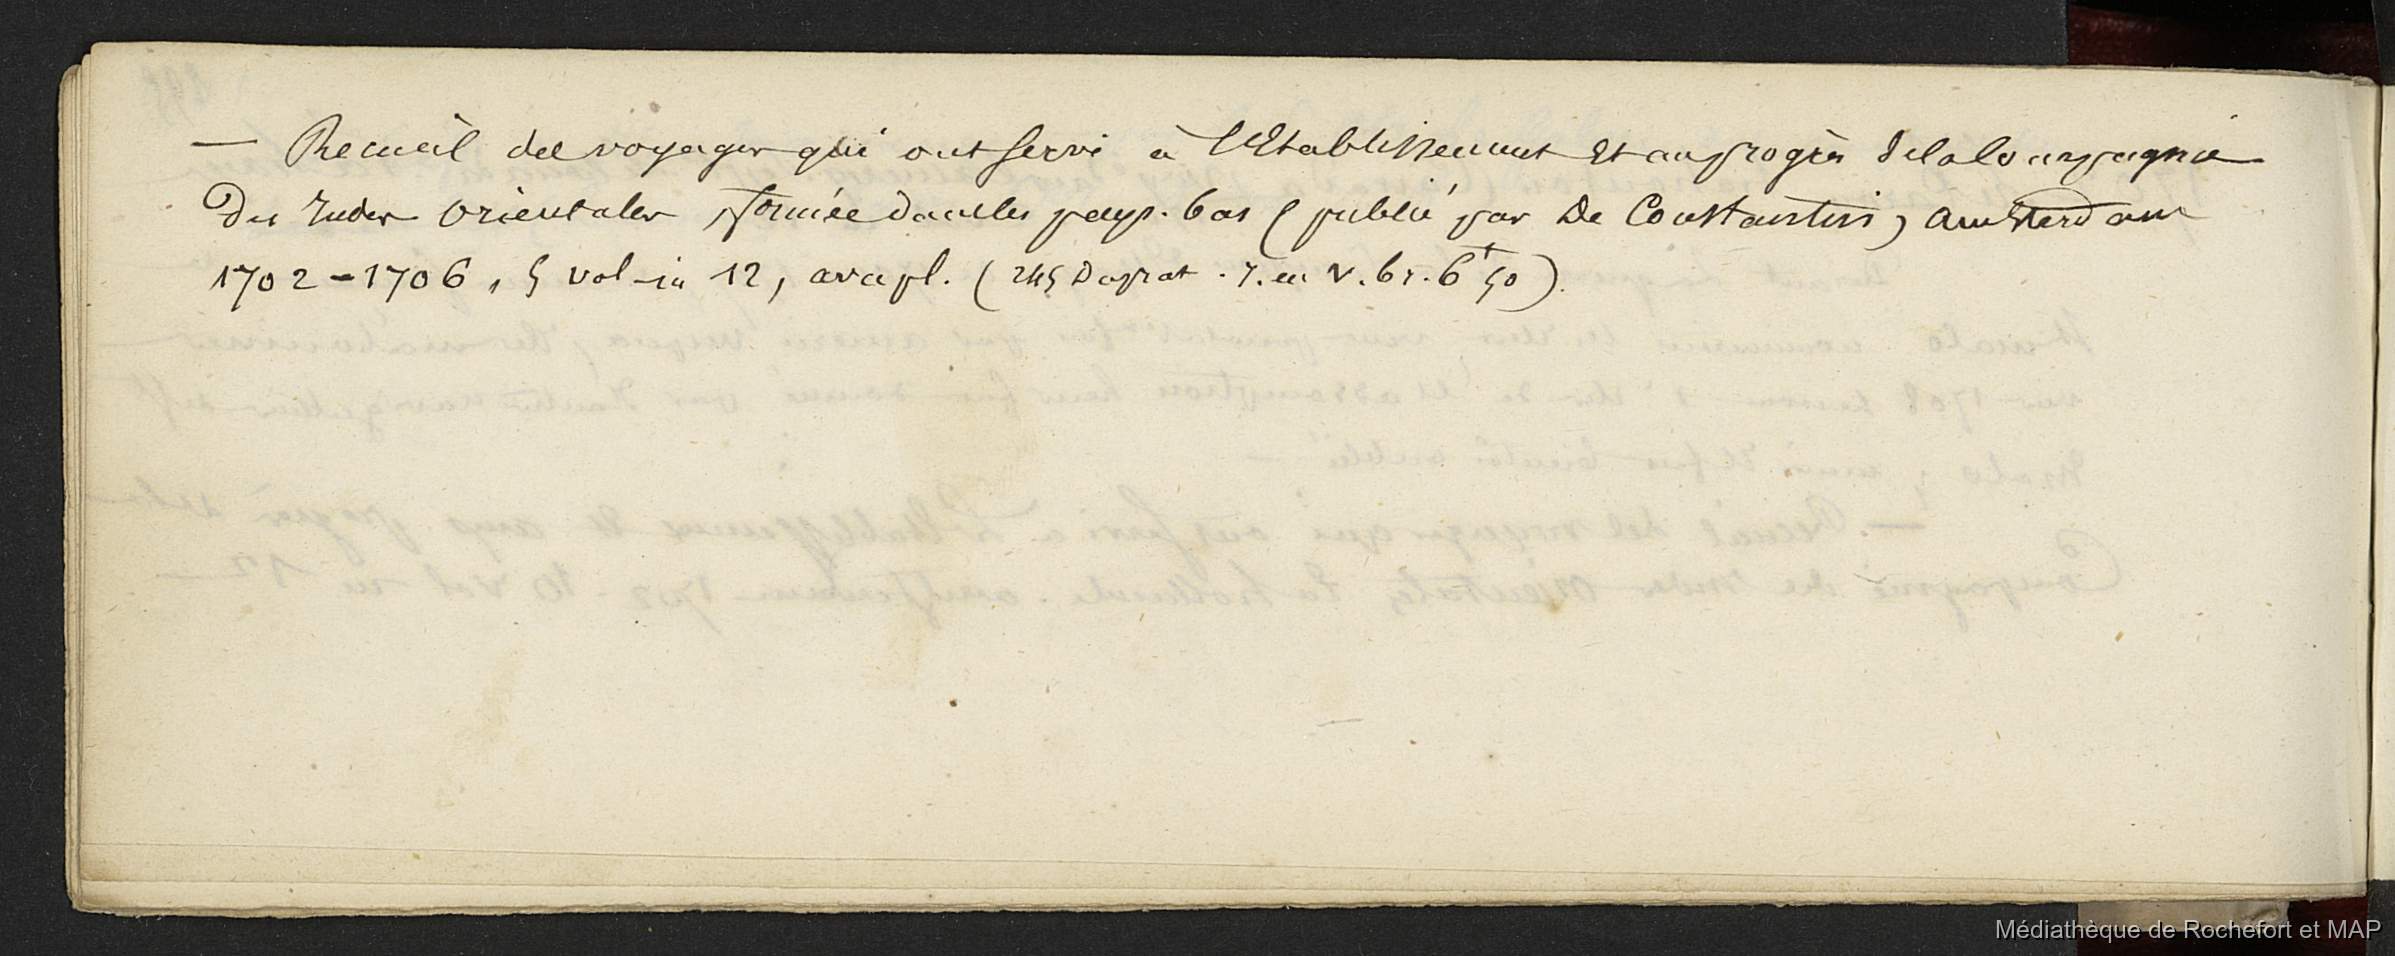 — Recueil des voyages qui ont servi à l'Etablissement Et au progrès de la Compagnie
Des Indes Orientales, formée dans les pays-bas (publié par De Constantin) amsterdam
1702 = 1706, 5 vol-in 12, avec pl. (245 Duprat. r. en v. br. 6f 50).
Médiathèque de Rochefort et MAP